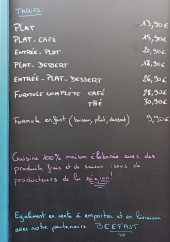 TARIFS
PLAT 13,90€
PLAT - CAFÉ 15,90€
ENTRÉE - PLAT 21,90€
PLAT - DESSERT 18,90€
ENTRÉE - PLAT - DESSERT 26,90€
FORMULE COMPLÈTE CAFÉ 28,90€
THÉ 30,90€
Formule enfant (boisson, plat, dessert) 9,90€
Cuisine 100% maison élaborée avec des
produits frais et de saison issus de
producteurs de la région!
Egalement en vente à emporter et en livraison
avec notre partenaire BEEFAST